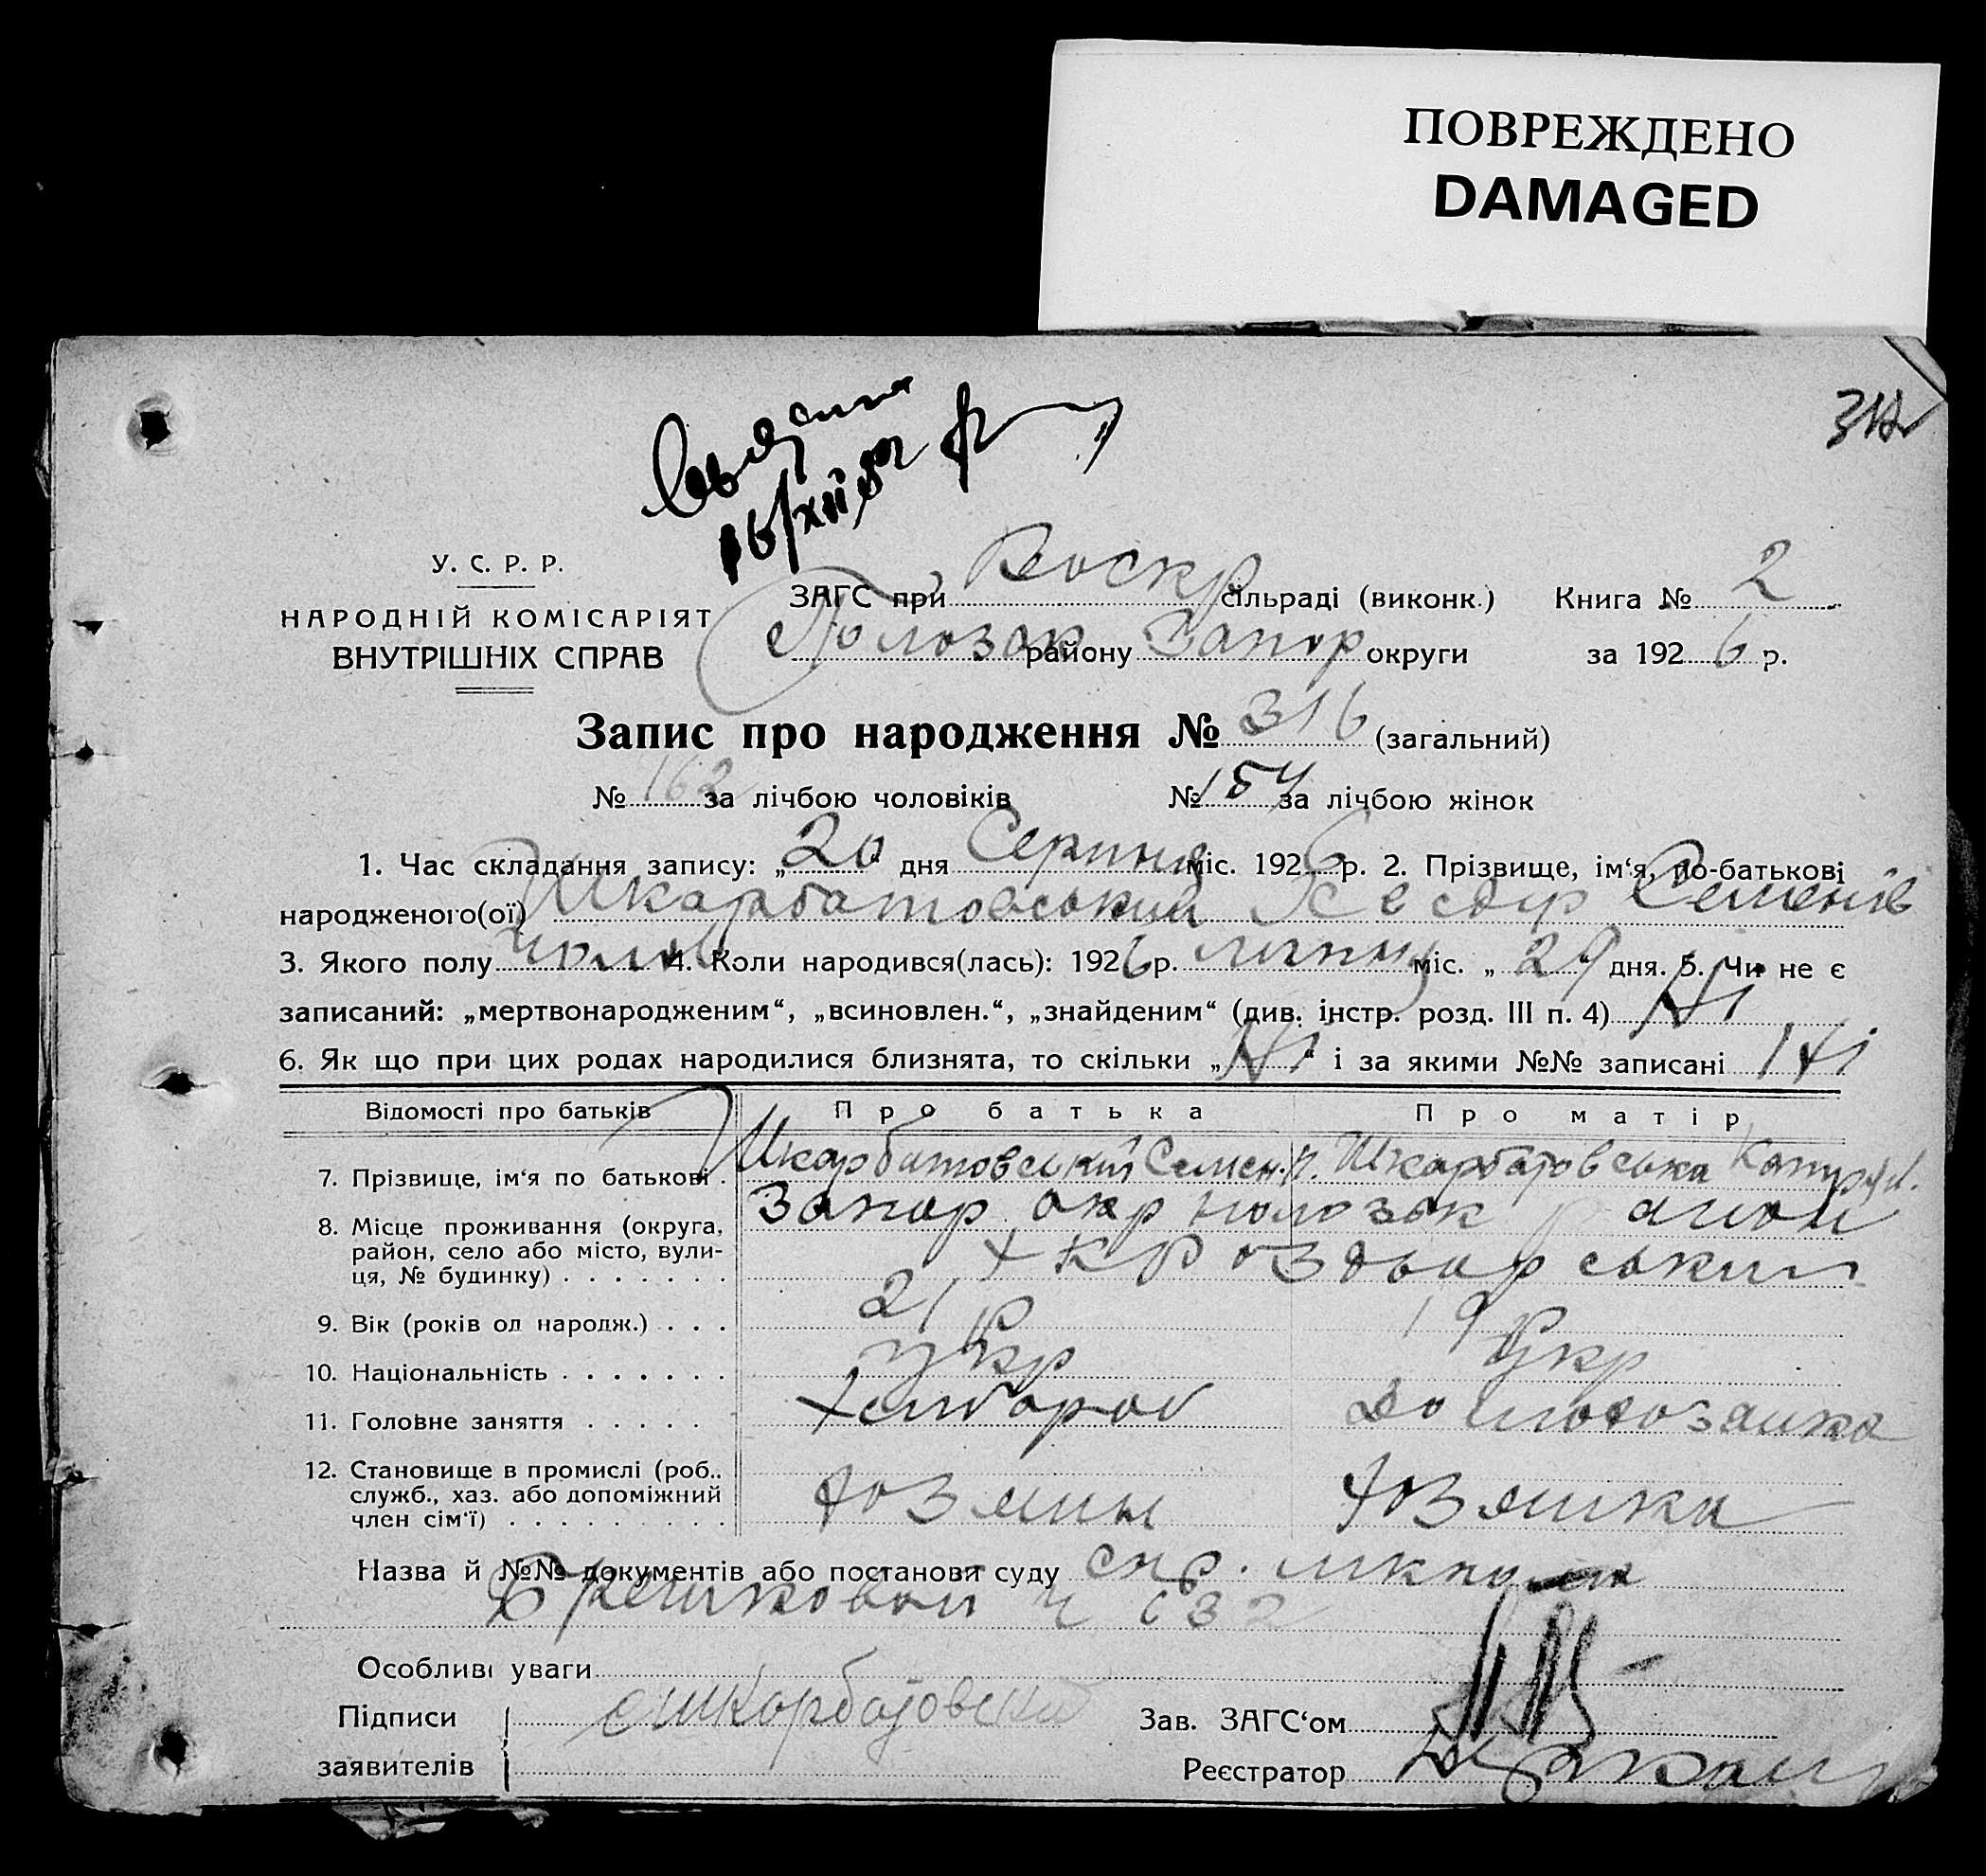 ПОВРЕЖДЕНО
DAMAGED
У. С. Р. Р.
НАРОДНІЙ КОМІСАРІЯТ
ВНУТРІШНІХ СПРАВ
16/XII
ЗАГС при Воскр сільраді (виконк.) Книга № 2
Полозьк району Запор округи за 1926 р.
Запис про народження № 316 (загальний)
№ 162 за лічбою чоловіків № 154 за лічбою жінок
1. Час складання запису: „20“ дня Серпня міс. 1926 р. 2. Прізвище, ім‘я, по-батькові
народженого(ої) Шкарбатовський Хведір Семенів
3. Якого полу чолов 4. Коли народився(лась): 1926 р. липня міс. „29“ дня. 5. Чи не є
записаний: „мертвонародженим“, „всиновлен.“, „знайденим“ (див. інстр. розд. III п. 4) Ні
6. Як що при цих родах народилися близнята, то скільки „Ні“ і за якими №№ записані Ні
Відомості про батьків Про батька Про матір
7. Прізвище, ім‘я по батькові . Шкарбатовський Семен Шкарбатовська
8. Місце проживання (округа, район, село або місто, вулиця, № будинку) . . . . . . . Запор окр полозьк
9. Вік (років од народж.) . . . 21 р 19 р
10. Національність . . . . . . . Укр Укр
11. Головне заняття . . . . . Хлібороб Домогозайка
12. Становище в промислі (роб.. служб., хаз. або допоміжний член сім‘ї) . . . . . . . . . Хозяин Хозяйка
Назва й №№ документів або постанови суду спр.
632
Особливі уваги
Підписи заявителів Шкорбатовский Зав. ЗАГС‘ом
Реєстратор